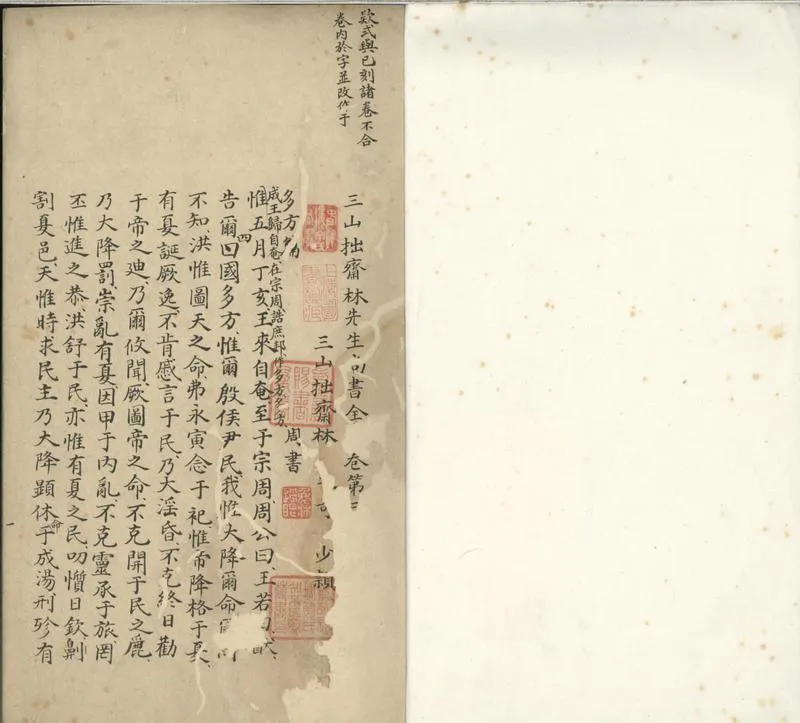 欵式與已刻諸卷不合
卷内於字並改作于
三山拙齋林先生尚書全 卷第三
三山拙齋林 竒 少穎
多方 周書
成王歸自奄在宗周誥庶邦作多方多方
惟五月丁亥王來自奄至于宗周周公曰王若曰猷
告爾四國多方惟爾殷侯尹民我惟大降爾命爾
不知洪惟圖天之命弗永寅念于祀惟帝降格于夏
有夏誕厥逸不肯慼言于民乃大淫昏不克終日勸
于帝之迪乃爾攸聞厥圖帝之命不克開于民之麗
乃大降罰崇亂有夏因甲于内亂不克靈承于旅罔
丕惟進之恭洪舒于民亦惟有夏之民叨懫日欽劓
割夏邑天惟時求民主乃大降顯休命于成湯刑殄有